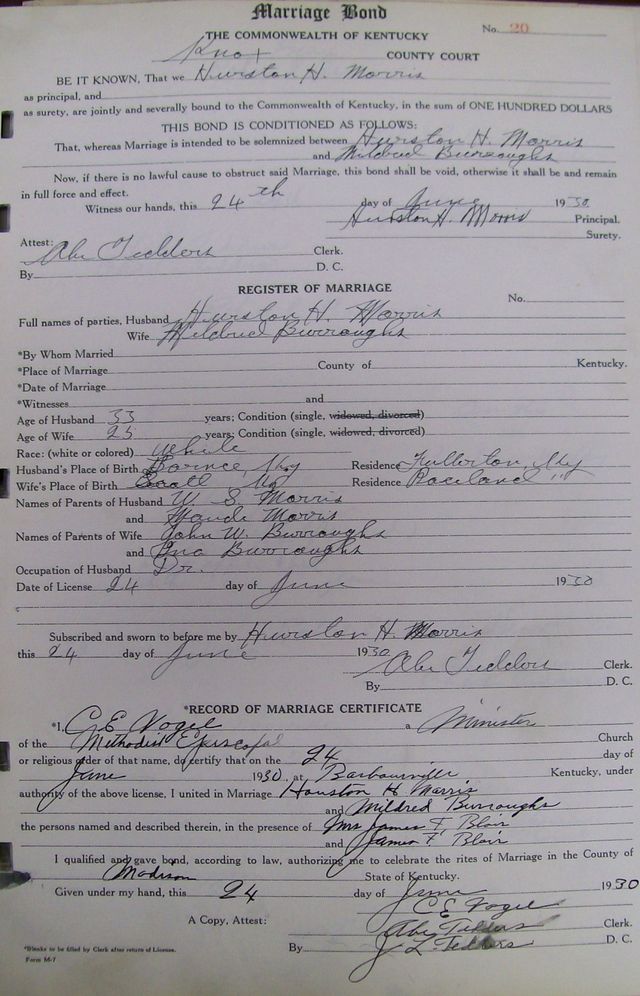 Marriage Bond
No. 20
THE COMMONWEALTH OF KENTUCKY
Knox COUNTY COURT
BE IT KNOWN, That we Hurston H. Morris
as principal, and
as surety, are jointly and severally bound to the Commonwealth of Kentucky, in the sum of ONE HUNDRED DOLLARS
THIS BOND IS CONDITIONED AS FOLLOWS:
That, whereas Marriage is intended to be solemnized between Hurston H. Morris
and Mildred Burroughs
Now, if there is no lawful cause to obstruct said Marriage, this bond shall be void, otherwise it shall be and remain
in full force and effect.
Witness our hands, this 24th day of June 1930
Hurston H. Morris Principal.
Surety.
Attest: Abe Tedders Clerk.
By D. C.
REGISTER OF MARRIAGE
No.
Full names of parties, Husband Hurston H. Morris
Wife Mildred Burroughs
*By Whom Married
*Place of Marriage County of Kentucky.
*Date of Marriage
*Witnesses and
Age of Husband 33 years; Condition (single, widowed, divorced)
Age of Wife 25 years; Condition (single, widowed, divorced)
Race: (white or colored) White
Husband's Place of Birth Ky Residence Fullerton, Ky
Wife's Place of Birth Ky Residence Raceland "
Names of Parents of Husband W. S. Morris
and Maude Morris
Names of Parents of Wife John W. Burroughs
and Burroughs
Occupation of Husband Dr.
Date of License 24 day of June 1930
Subscribed and sworn to before me by Hurston H. Morris
this 24 day of June 1930
Abe Tedders Clerk.
By D. C.
*RECORD OF MARRIAGE CERTIFICATE
*I, C. E. Vogel a Minister
of the Methodist Episcopal Church
or religious order of that name, do certify that on the 24 day of
June 1930, at Barbourville Kentucky, under
authority of the above license, I united in Marriage Houston H. Morris
and Mildred Burroughs
the persons named and described therein, in the presence of Mrs James F. Blair
and James F. Blair
I qualified and gave bond, according to law, authorizing me to celebrate the rites of Marriage in the County of
Madison State of Kentucky.
Given under my hand, this 24 day of June 1930
C E Vogel
A Copy, Attest: Abe Tedders Clerk.
By J. L. Tedders D. C.
*Blanks to be filled by Clerk after return of License.
Form M-7